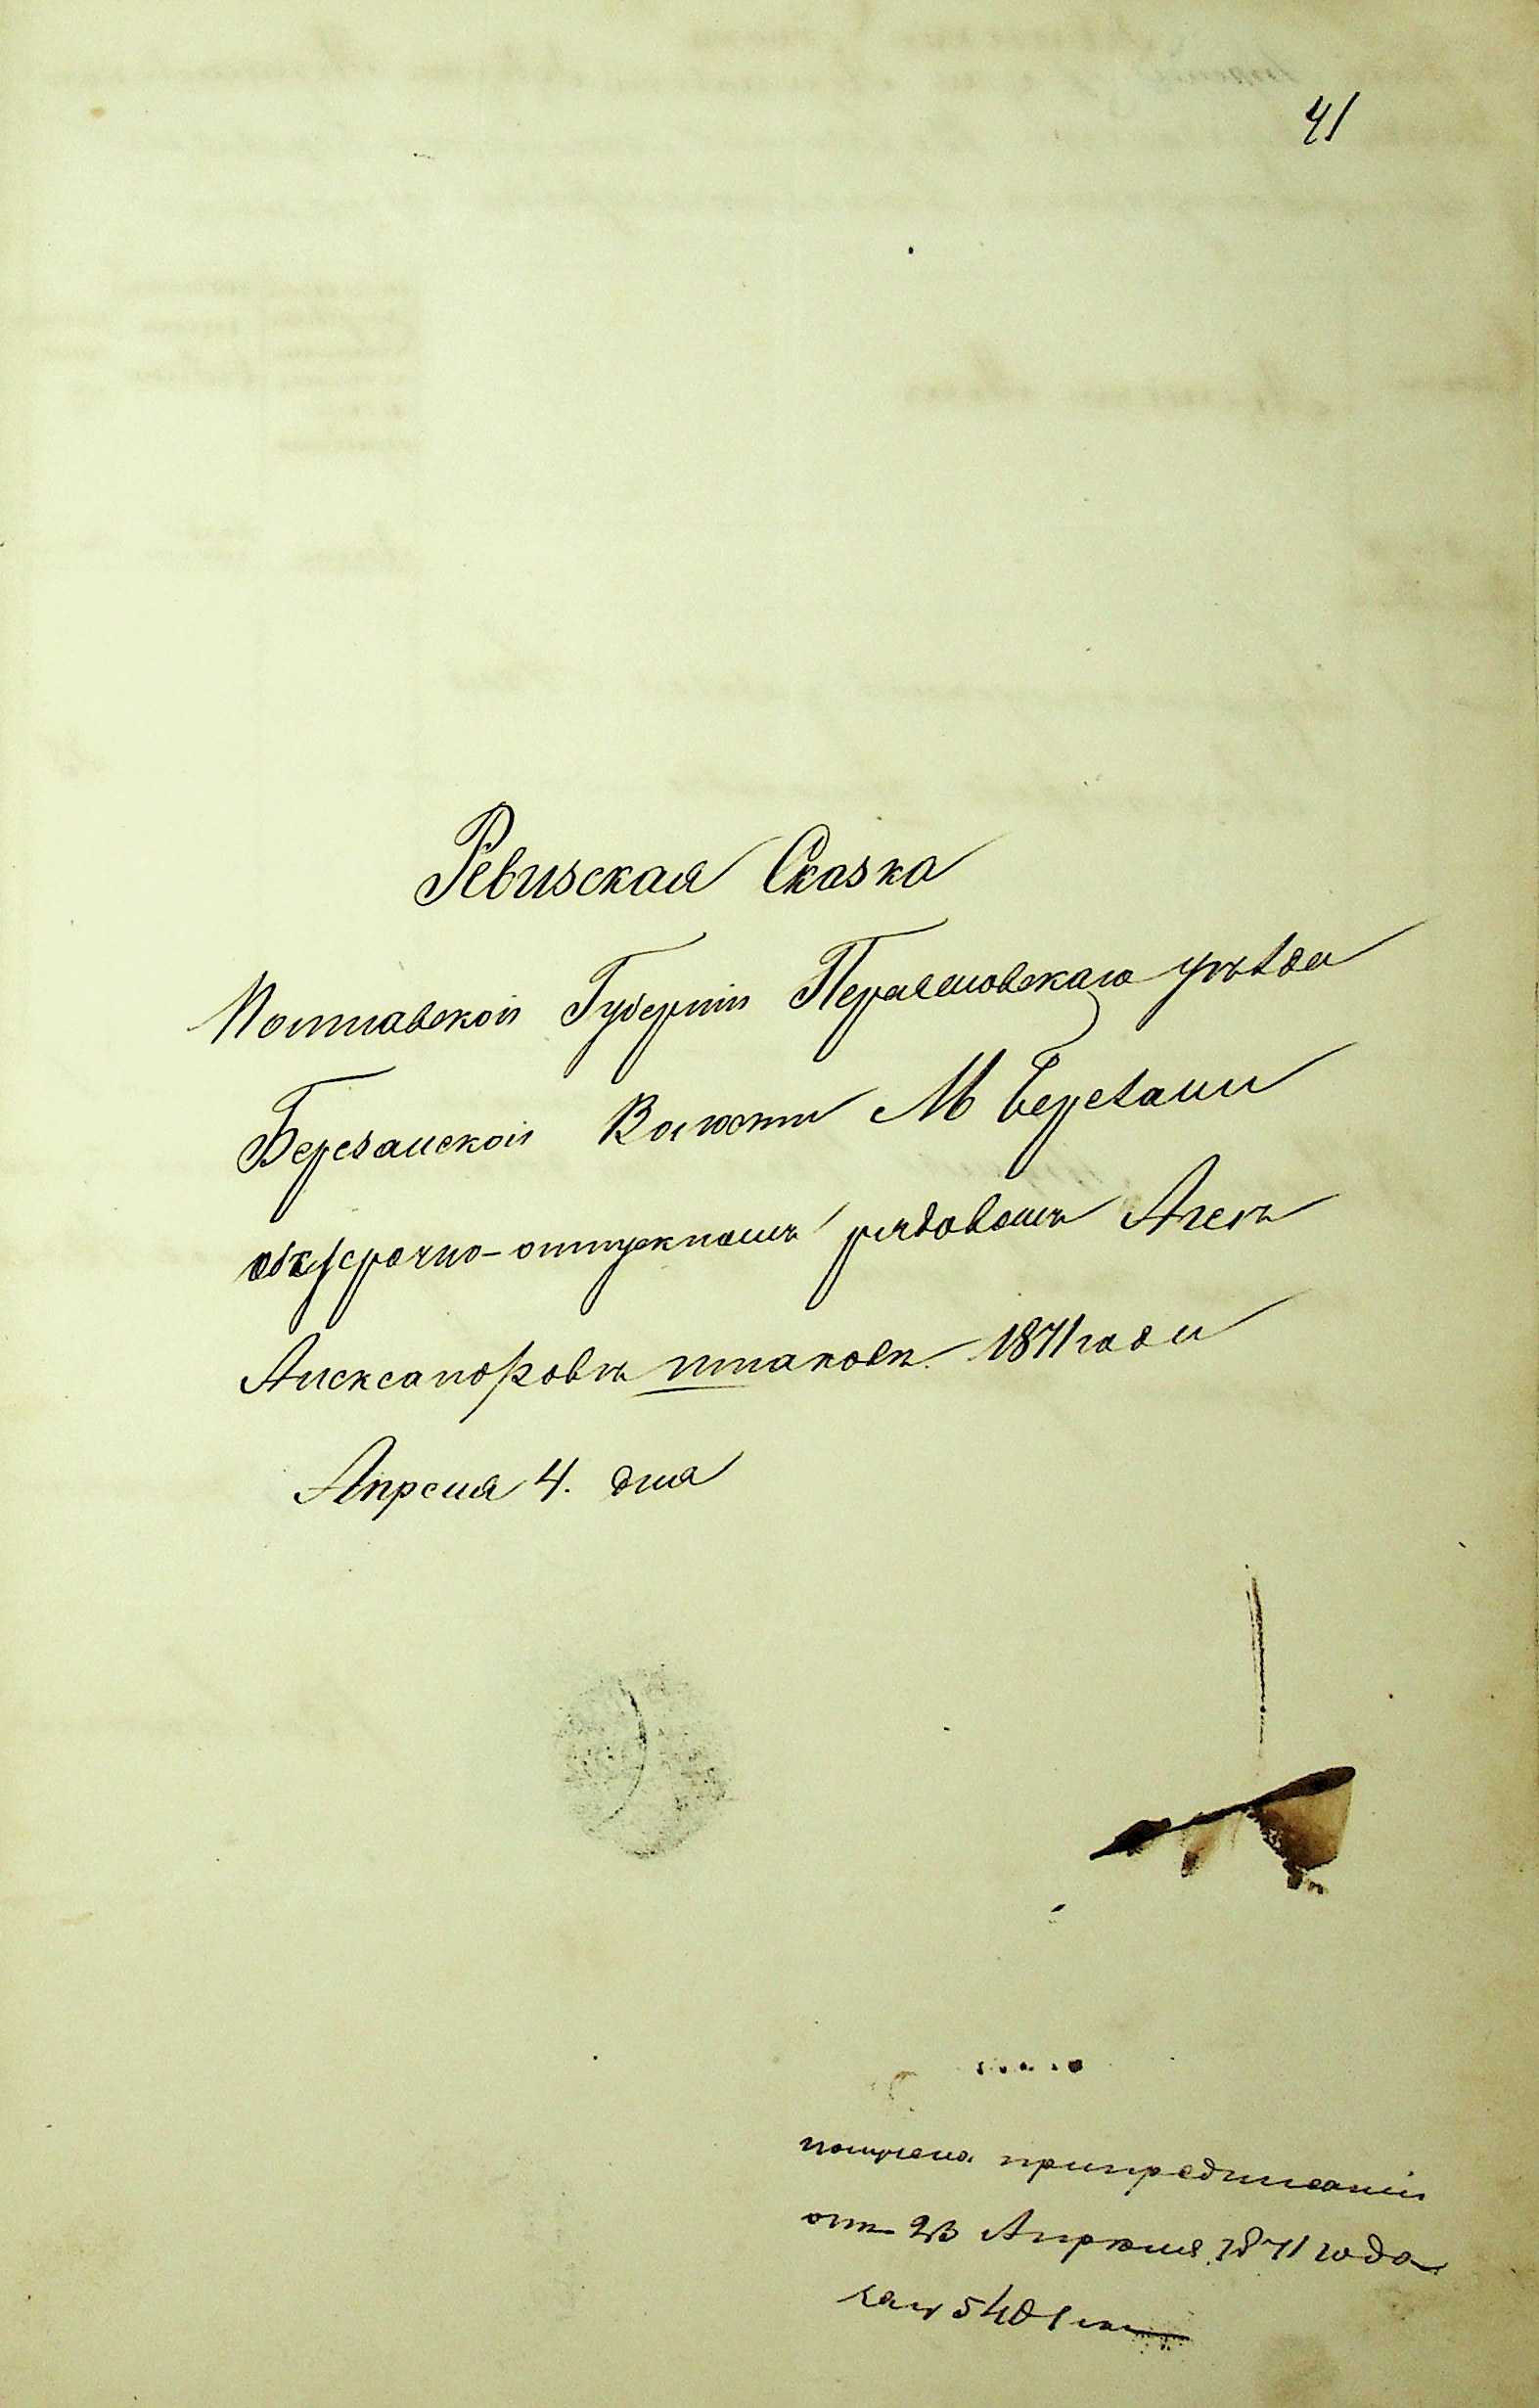 41
Ревизская Сказка
Полтавской Губерніи Переяславскаго уѣзда
Березанской Волости М Березани
объ безсрочно-отпускномъ рядовомъ
Александровѣ 1871 года
Апреля 4. дня
получена при предписаніи
отъ 23 Апреля 1871 года
за № 5401